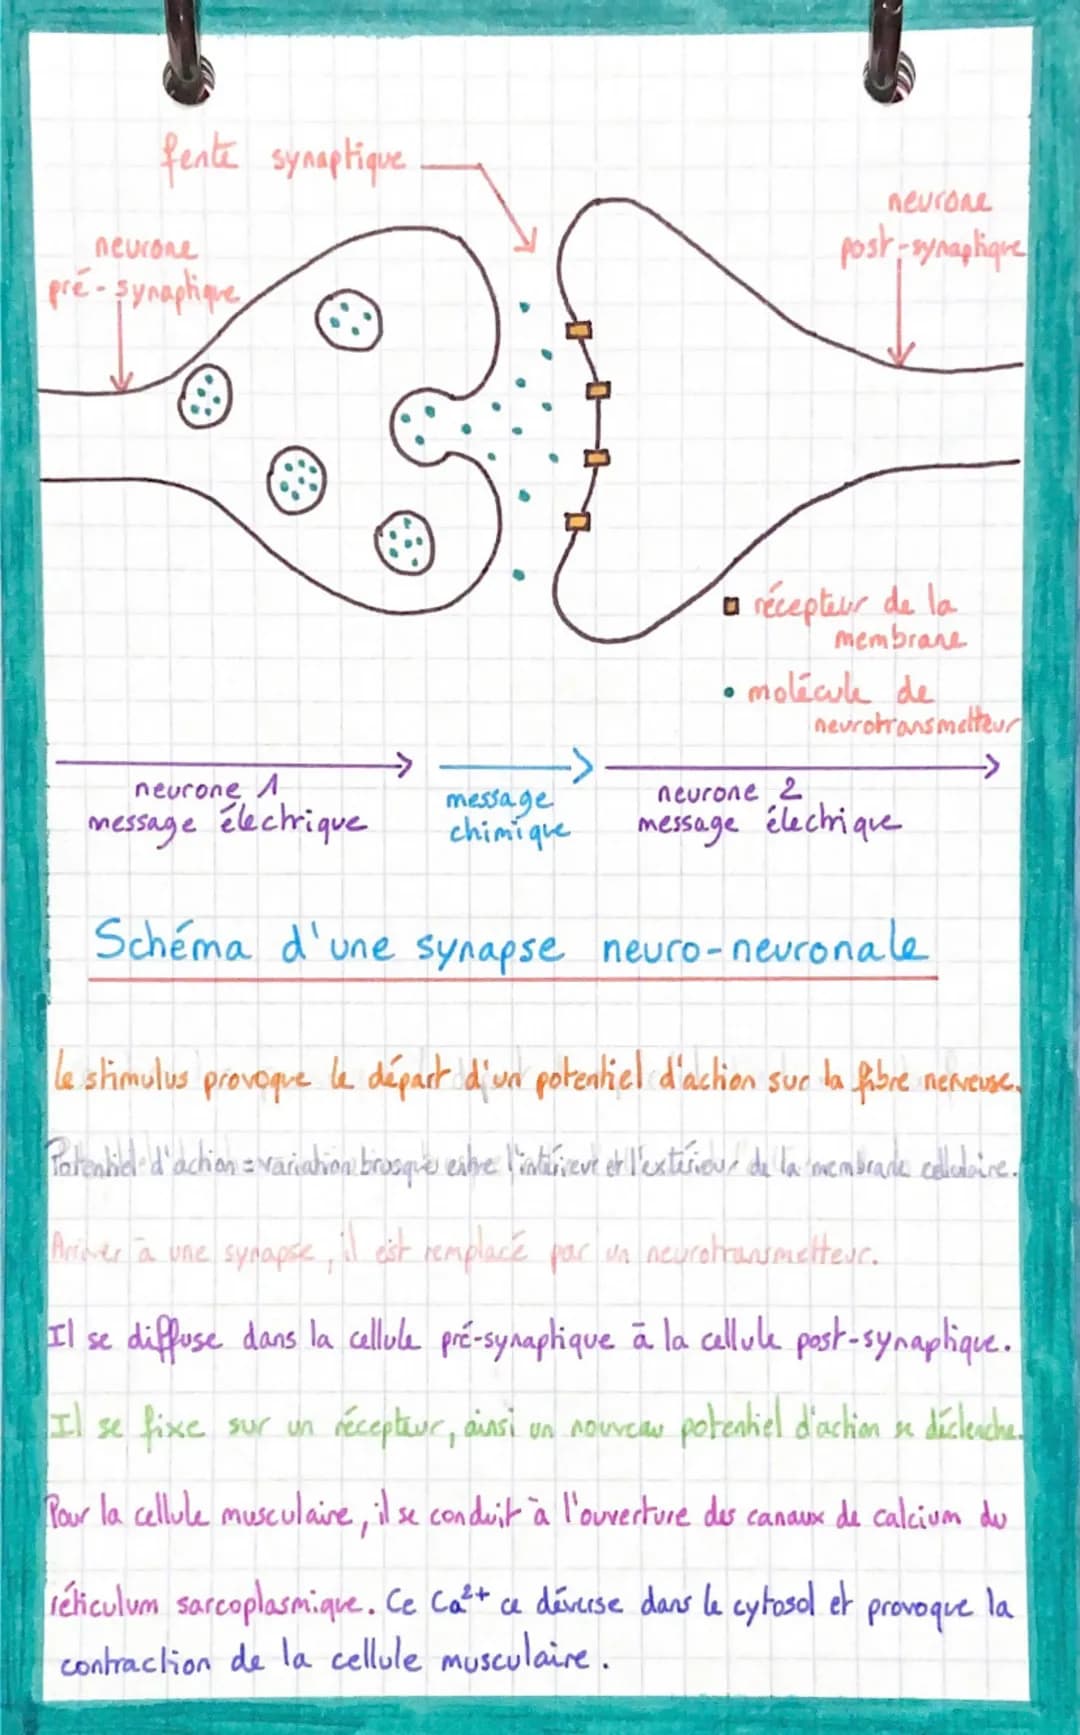 fente synaptique
neurone
pré-synaptique
neurone
post-synaptique
récepteur de la
membrane
molécule de
neurotransmetteur
neurone 1
message électrique
message
chimique
neurone 2
message électrique
Schéma d'une synapse neuro-neuronale
Le stimulus provoque le départ d'un potentiel d'action sur la fibre nerveuse.
Potentiel d'action = variation brusque entre l'intérieur et l'extérieur de la membrane cellulaire.
Arriver à une synapse, il est remplacé par un neurotransmetteur.
Il se diffuse dans la cellule pré-synaptique à la cellule post-synaptique.
Il se fixe sur un récepteur, ainsi un nouveau potentiel d'action se déclenche.
Pour la cellule musculaire, il se conduit à l'ouverture des canaux de calcium du
réticulum sarcoplasmique. Ce Ca²⁺ ce déverse dans le cytosol et provoque la
contraction de la cellule musculaire.